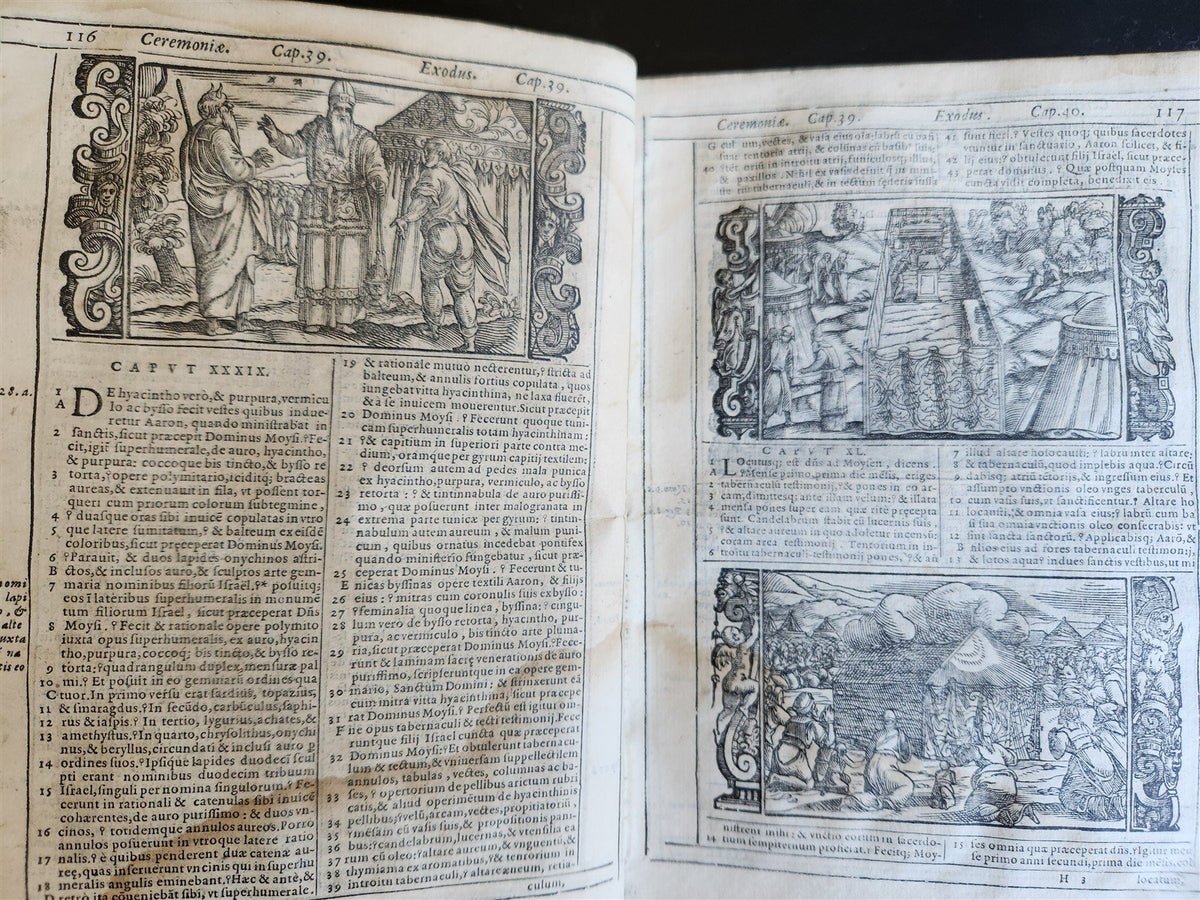 116 Ceremoniæ. Cap.39. Exodus. Cap.39.
CAPVT XXXIX.
28.a.
1 DE hyacintho verò, & purpura, vermicu
A lo ac bysso fecit vestes quibus indue-
retur Aaron, quando ministrabat in
2 sanctis, sicut præcepit Dominus Moysi. ⸮Fe-
cit, igit̃ superhumerale, de auro, hyacintho,
& purpura: coccoque bis tincto, & bysso re
3 torta, ⸮opere polymitario, iciditq; bracteas
aureas, & extenuauit in fila, vt possent tor-
queri cum priorum colorum subtegmine,
4 ⸮ duasque oras sibi inuicẽ copulatas in vtro
5 que latere sumitatum, ⸮ & balteum ex eisdẽ
coloribus, sicut pręceperat Dominus Moysi.
6 ⸮Parauit, & duos lapides onychinos astri-
B ctos, & inclusos auro, & sculptos arte gem-
7 maria nominibus filiorũ Israël, ⸮ posuitq;
eos ĩ lateribus superhumeralis in monumẽ
tum filiorum Israel, sicut præceperat Dñs
8 Moysi. ⸮ Fecit & rationale opere polymito
iuxta opus superhumeralis, ex auro, hyacin
tho, purpura, coccoq; bis tincto, & bysso re-
9 torta: ⸮quadrangulum duplex, mensuræ pal
10 mi. ⸮ Et posuit in eo gemmarũ ordines qua
C tuor. In primo versu erat sardius, topazius,
11 & smaragdus. ⸮ In secũdo, carbũculus, saphi-
12 rus & iaspis. ⸮ In tertio, lygurius, achates, &
13 amethystus. ⸮In quarto, chrysolithus, onychi
nus, & beryllus, circundati & inclusi auro p
14 ordines suos. ⸮Ipsiq̃ue lapides duodecĩ scul
pti erant nominibus duodecim tribuum
15 Israel, singuli per nomina singulorum. ⸮ Fe-
cerunt in rationali & catenulas sibi inuicẽ
cohærentes, de auro purissimo: & duos vn
16 cinos, ⸮ totidemque annulos aureos. Porro
annulos posuerunt in vtroque latere ratio
17 nalis. ⸮ è quibus penderent duæ catenæ au-
reę, quas inseruerunt vncinis qui in superhu
18 meralis angulis eminebant. ⸮Hæc & antè, &
D retro ita cõueniebãt sibi, vt superhumerale.
19 & rationale mutuò necterentur, ⸮ stricta ad
balteum, & annulis fortius copulata, quos
iungebat vitta hyacinthina, ne laxa fluerẽt,
& à se inuicem mouerentur. Sicut præcepit
20 Dominus Moysi. ⸮ Fecerunt quoque tuni-
cam superhumeralis totam hyacinthinam:
21 ⸮& capitium in superiori parte contra me-
dium, oramque per gyrum capitij textilem:
22 ⸮ deorsum autem ad pedes mala punica
ex hyacintho, purpura, vermiculo, ac bysso
23 retorta: ⸮ & tintinnabula de auro purissi-
mo, quæ posuerunt inter malogranata in
24 extrema parte tunicæ per gyrum: ⸮ tintin-
nabulum autem aureum, & malum puni-
cum, quibus ornatus incedebat pontifex
quando ministerio fungebatur, sicut præ-
25 ceperat Dominus Moysi. ⸮ Fecerunt & tu-
E nicas byssinas opere textili Aaron, & filijs
26 eius: ⸮ & mitras cum coronulis suis ex bysso:
27 ⸮feminalia quoque linea, byssina: ⸮ cingu-
28 lum verò de bysso retorto, hyacintho, pur-
pura, ac vermiculo, bis tincto arte pluma-
29 ria, sicut præceperat Dominus Moysi. ⸮Fece-
runt & laminam sacrę venerationis de auro
purissimo, scripseruntque in ea opere gem-
30 mario, Sanctum Domini: ⸮ & strinxerunt eã
cum mitra vitta hyacinthina, sicut præcepe
31 rat Dominus Moysi. ⸮ Perfectũ est igitur om-
F ne opus tabernaculi & tecti testimonij. Fece
runtque filij Israel cuncta quæ præceperat
32 Dominus Moysi: ⸮ Et obtulerunt tabernacu-
lum & tectum, & vniuersam suppellectilem
annulos, tabulas, vectes, columnas ac ba-
33 ses, ⸮ opertorium de pellibus arietum rubri
catis, & aliud operimẽtum de hyacinthinis
34 pellibus; ⸮velũ, arcam, vectes, propitiatoriũ,
35 ⸮mẽsam cũ vasis suis, & propositionis pani-
36 bus: ⸮ candelabrum, lucernas, & vtensilia ea
37 rum cũ oleo: ⸮ altare aureum, & vnguentũ, &
38 thymiama ex aromatibus, ⸮ & tentorium in
39 introitu tabernaculi, ⸮ altare æneum, retia-
culum,
Ceremoniæ. Cap.39. Exodus. Cap.40. 117
G culum, vectes, & vasa eius oĩa: labrũ cũ basi
sua: tentoria atrij, & colũnas cũ basibus suis,
40 ⸮tẽtoriũ in introitu atrij, funiculosq; illius,
& paxillos. Nihil ex vasis defuit q̃ in mini-
sterium tabernaculi, & in tectum fęderis iussa
41 sunt fieri. ⸮ Vestes quoq; quibus sacerdotes
vtuntur in sanctuario, Aaron scilicet, & fi-
42 lij eius: ⸮ obtulerunt filij Israel, sicut præce-
43 perat dominus. ⸮ Quæ postquam Moyses
cuncta vidit completa, benedixit eis.
CAPVT XL.
1 LOcutusq; est dñs ad Moysen, dicens.
A ⸮Mense primo, prima die mẽsis, eriges
2 tabernaculũ testimonij, ⸮ & pones in eo ar-
3 cam, dimittesq; ante illam velum: ⸮ & illata
4 mensa pones super eam quæ ritè pręcepta
sunt. Candelabrum stabit cũ lucernis suis,
5 ⸮ & altare aureum in quo adoletur incensũ:
coram arca testimonij. Tentorium in in-
6 troitu tabernaculi testimonij pones, ⸮ & an
7 illud altare holocausti: ⸮ labrũ inter altare;
8 & tabernaculũ, quod implebis aqua. ⸮ Circũ
9 dabisq; atriũ tẽtorijs, & ingressum eius. ⸮ Et
assumpto vnctionis oleo vnges tabernaculũ,
10 cum vasis suis, vt sanctificentur. ⸮ Altare ho
11 locausti, & omnia vasa eius; ⸮ labrũ cum ba
si sua omnia vnctionis oleo consecrabis: vt
12 sint sancta sanctorũ. ⸮ Applicabisq; Aarõ, &
B filios eius ad fores tabernaculi testimonij:
13 & lotos aqua ⸮ indues sanctis vestibus, vt mi
nistrent mihi: & vnctio eorum in sacerdo-
14 tium sempiternum proficiat. ⸮ Fecitq; Moy-
15 ses omnia quæ præceperat dñs. ⸮Igitur men
se primo anni secundi, prima die mẽsis, col
H 3 locatum,